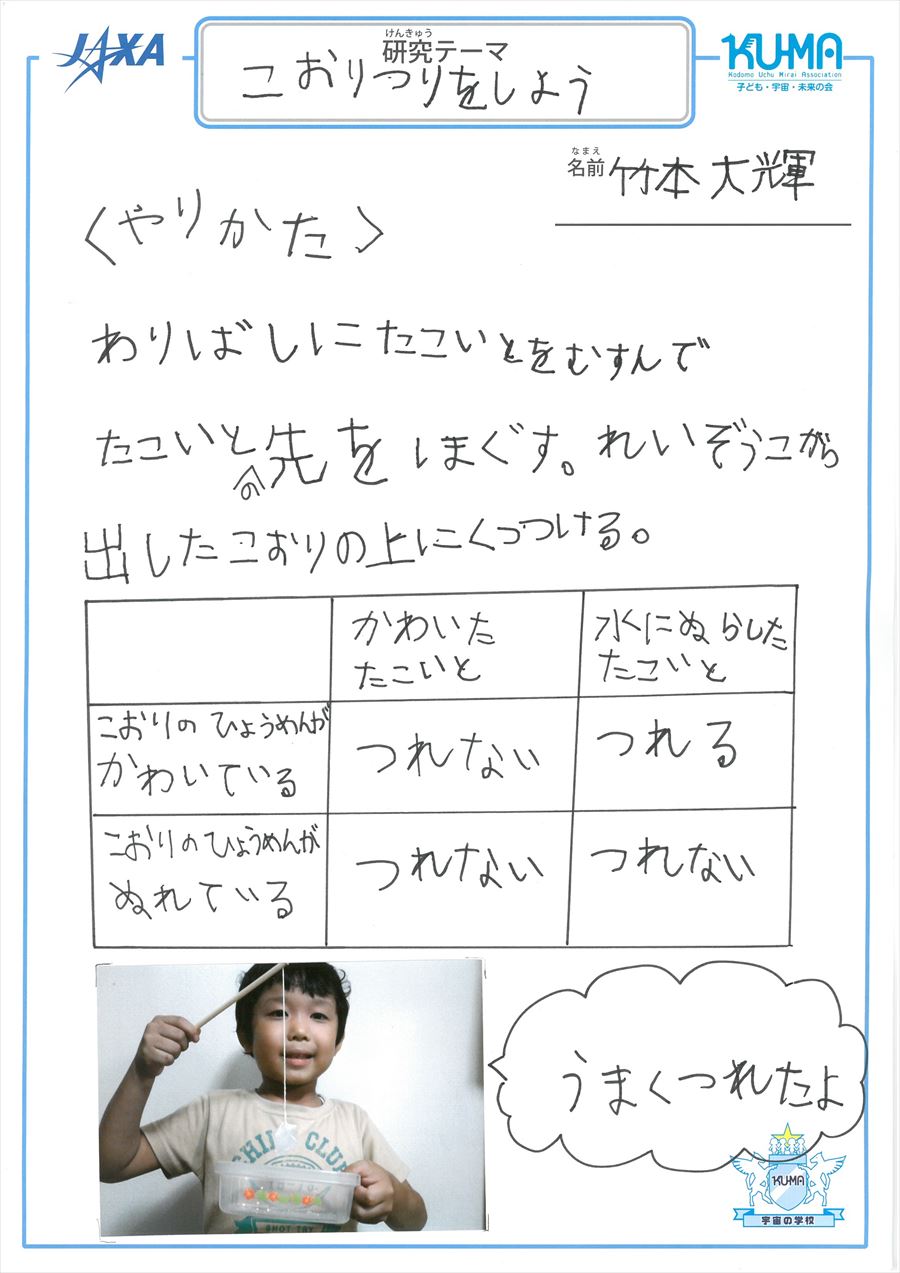 JAXA
けんきゅう
研究テーマ
こおりつりをしよう
KU-MA
Kodomo Uchu Mirai Association
子ども・宇宙・未来の会
なまえ
名前 竹本 大輝
〈やりかた〉
わりばしにたこいとをむすんで
たこいとの先をほまぐす。れいぞうこから
出したこおりの上にくっつける。
かわいた
たこいと
水にぬらした
たこいと
こおりのひょうめんが
かわいている
つれない
つれる
こおりのひょうめんが
ぬれている
つれない
つれない
うまくつれたよ
KU-MA
宇宙の学校